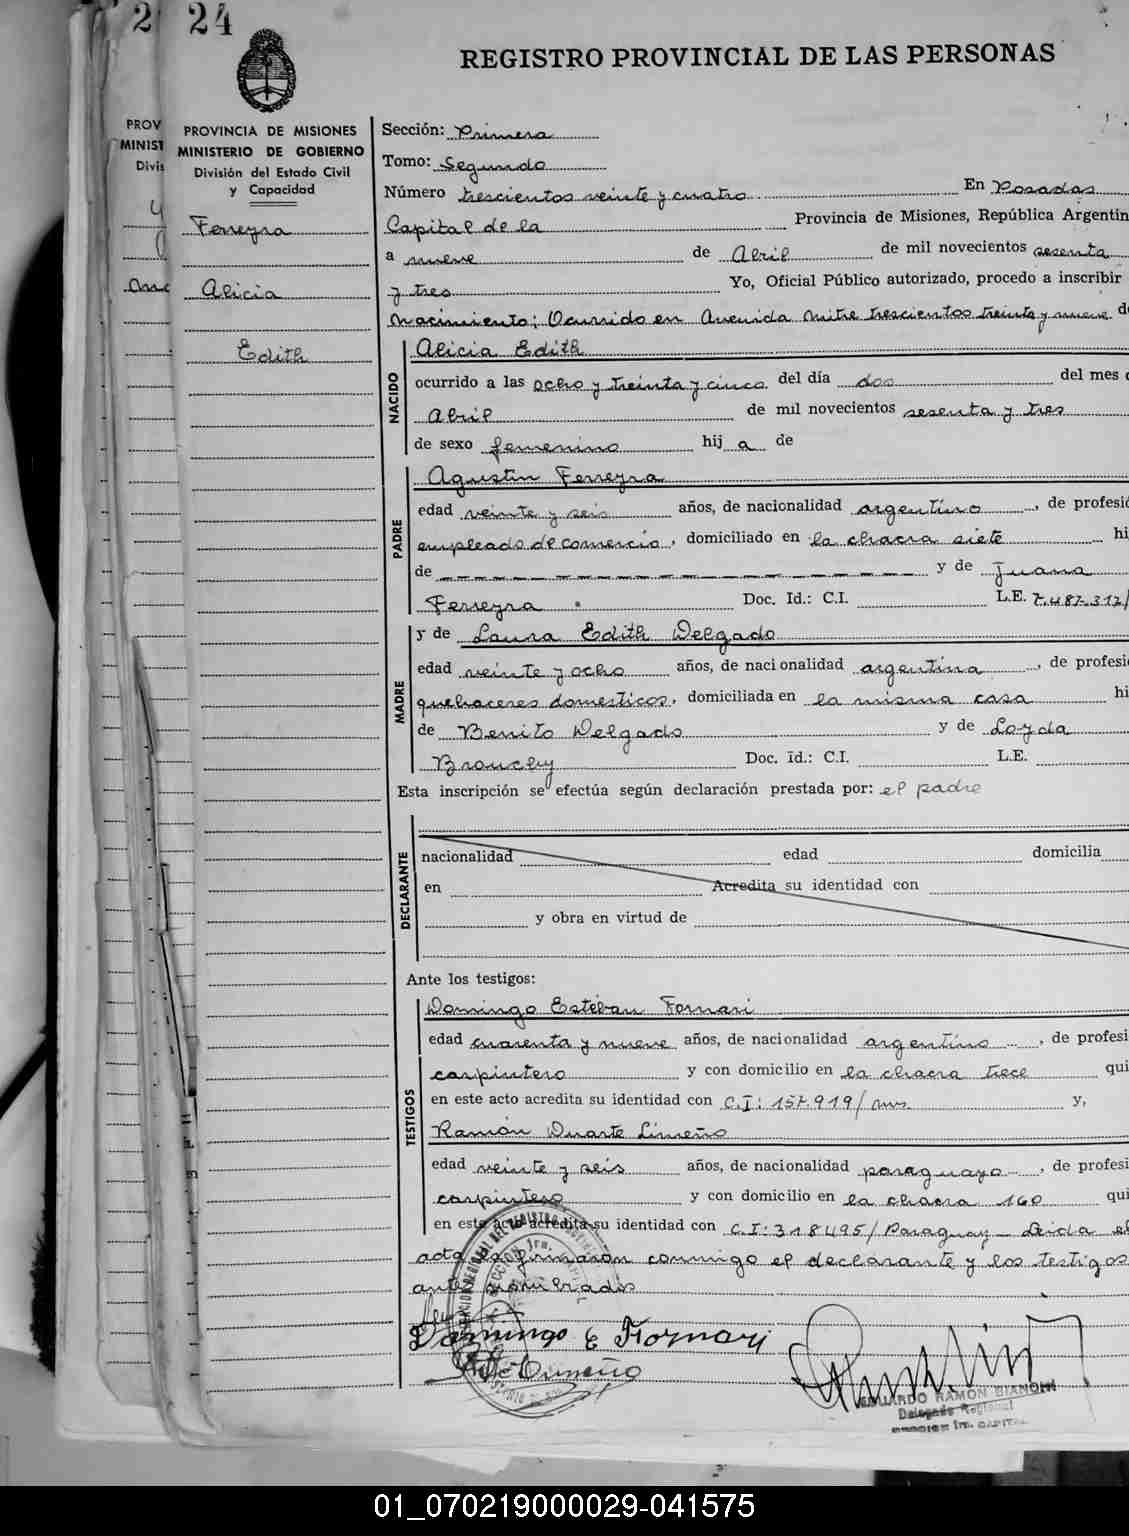 24
REGISTRO PROVINCIAL DE LAS PERSONAS
PROV
MINIST
Divis
PROVINCIA DE MISIONES
MINISTERIO DE GOBIERNO
División del Estado Civil
y Capacidad
Ferreyra
Alicia
Edith
Sección: Primera
Tomo: Segundo
Número trescientos veinte y cuatro En Posadas
Capital de la Provincia de Misiones, República Argentin
a nueve de Abril de mil novecientos sesenta
y tres Yo, Oficial Público autorizado, procedo a inscribir
Nacimiento: Ocurrido en Avenida Mitre trescientos treinta y nueve d
NACIDO
Alicia Edith
ocurrido a las ocho y treinta y cinco del día dos del mes
Abril de mil novecientos sesenta y tres
de sexo femenino hij a de
PADRE
Agustin Ferreyra
edad veinte y seis años, de nacionalidad argentino, de profesi
empleado de comercio, domiciliado en la chacra siete hi
de y de Juana
Ferreyra Doc. Id.: C.I. L.E. 7.487.317/
MADRE
y de Laura Edith Delgado
edad veinte y ocho años, de nacionalidad argentina, de profesi
quehaceres domesticos, domiciliada en la misma casa hi
de Benito Delgado y de Loyda
Brouchy Doc. id.: C.I. L.E.
Esta inscripción se efectúa según declaración prestada por: el padre
DECLARANTE
nacionalidad edad domicilia
en Acredita su identidad con
y obra en virtud de
Ante los testigos:
TESTIGOS
Domingo Estéban Fornari
edad cuarenta y nueve años, de nacionalidad argentino, de profesi
carpintero y con domicilio en la chacra trece qui
en este acto acredita su identidad con C.I: 157.919/ mns. y,
Ramón Duarte Limeño
edad veinte y seis años, de nacionalidad paraguayo, de profesi
carpintero y con domicilio en la chacra 160 qui
en este acto acredita su identidad con C.I: 318495/ Paraguay_ Leida el
acta la firmaron conmigo el declarante y los testigos
antes nombrados
Domingo E Fornari
EDUARDO RAMON BIANCHI
Delegado Regional
SECCION 1ra. CAPITAL
01_070219000029-041575